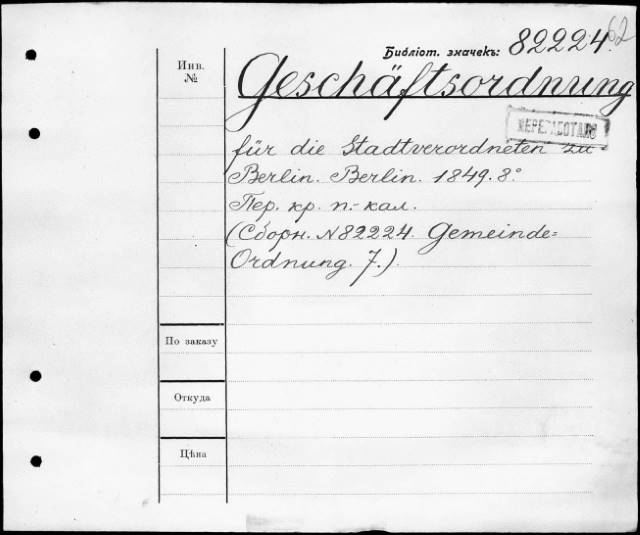 62
Библіот. значекъ: 82224.
Инв. №
Geschäftsordnung
ПЕРЕРАБОТАНО
für die Stadtverordneten zu
Berlin. Berlin. 1849. 8°
Пер. кр. п.-кал.
(Сборн. N 82224. Gemeinde=
Ordnung. 7.)
По заказу
Откуда
Цѣна